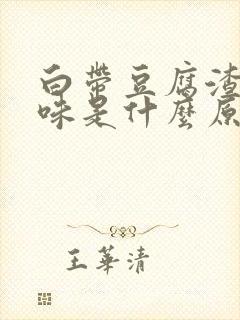 白帶豆腐渣
味是什麼原
王華清